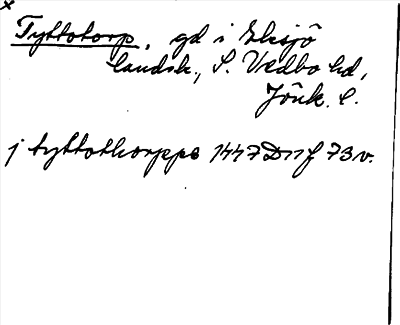 x
Tyttotorp, gd i Eksjö
landsk., S. Vedbo hd,
Jönk. l.
j tyttothorppe 1447 Dnf 73 v.